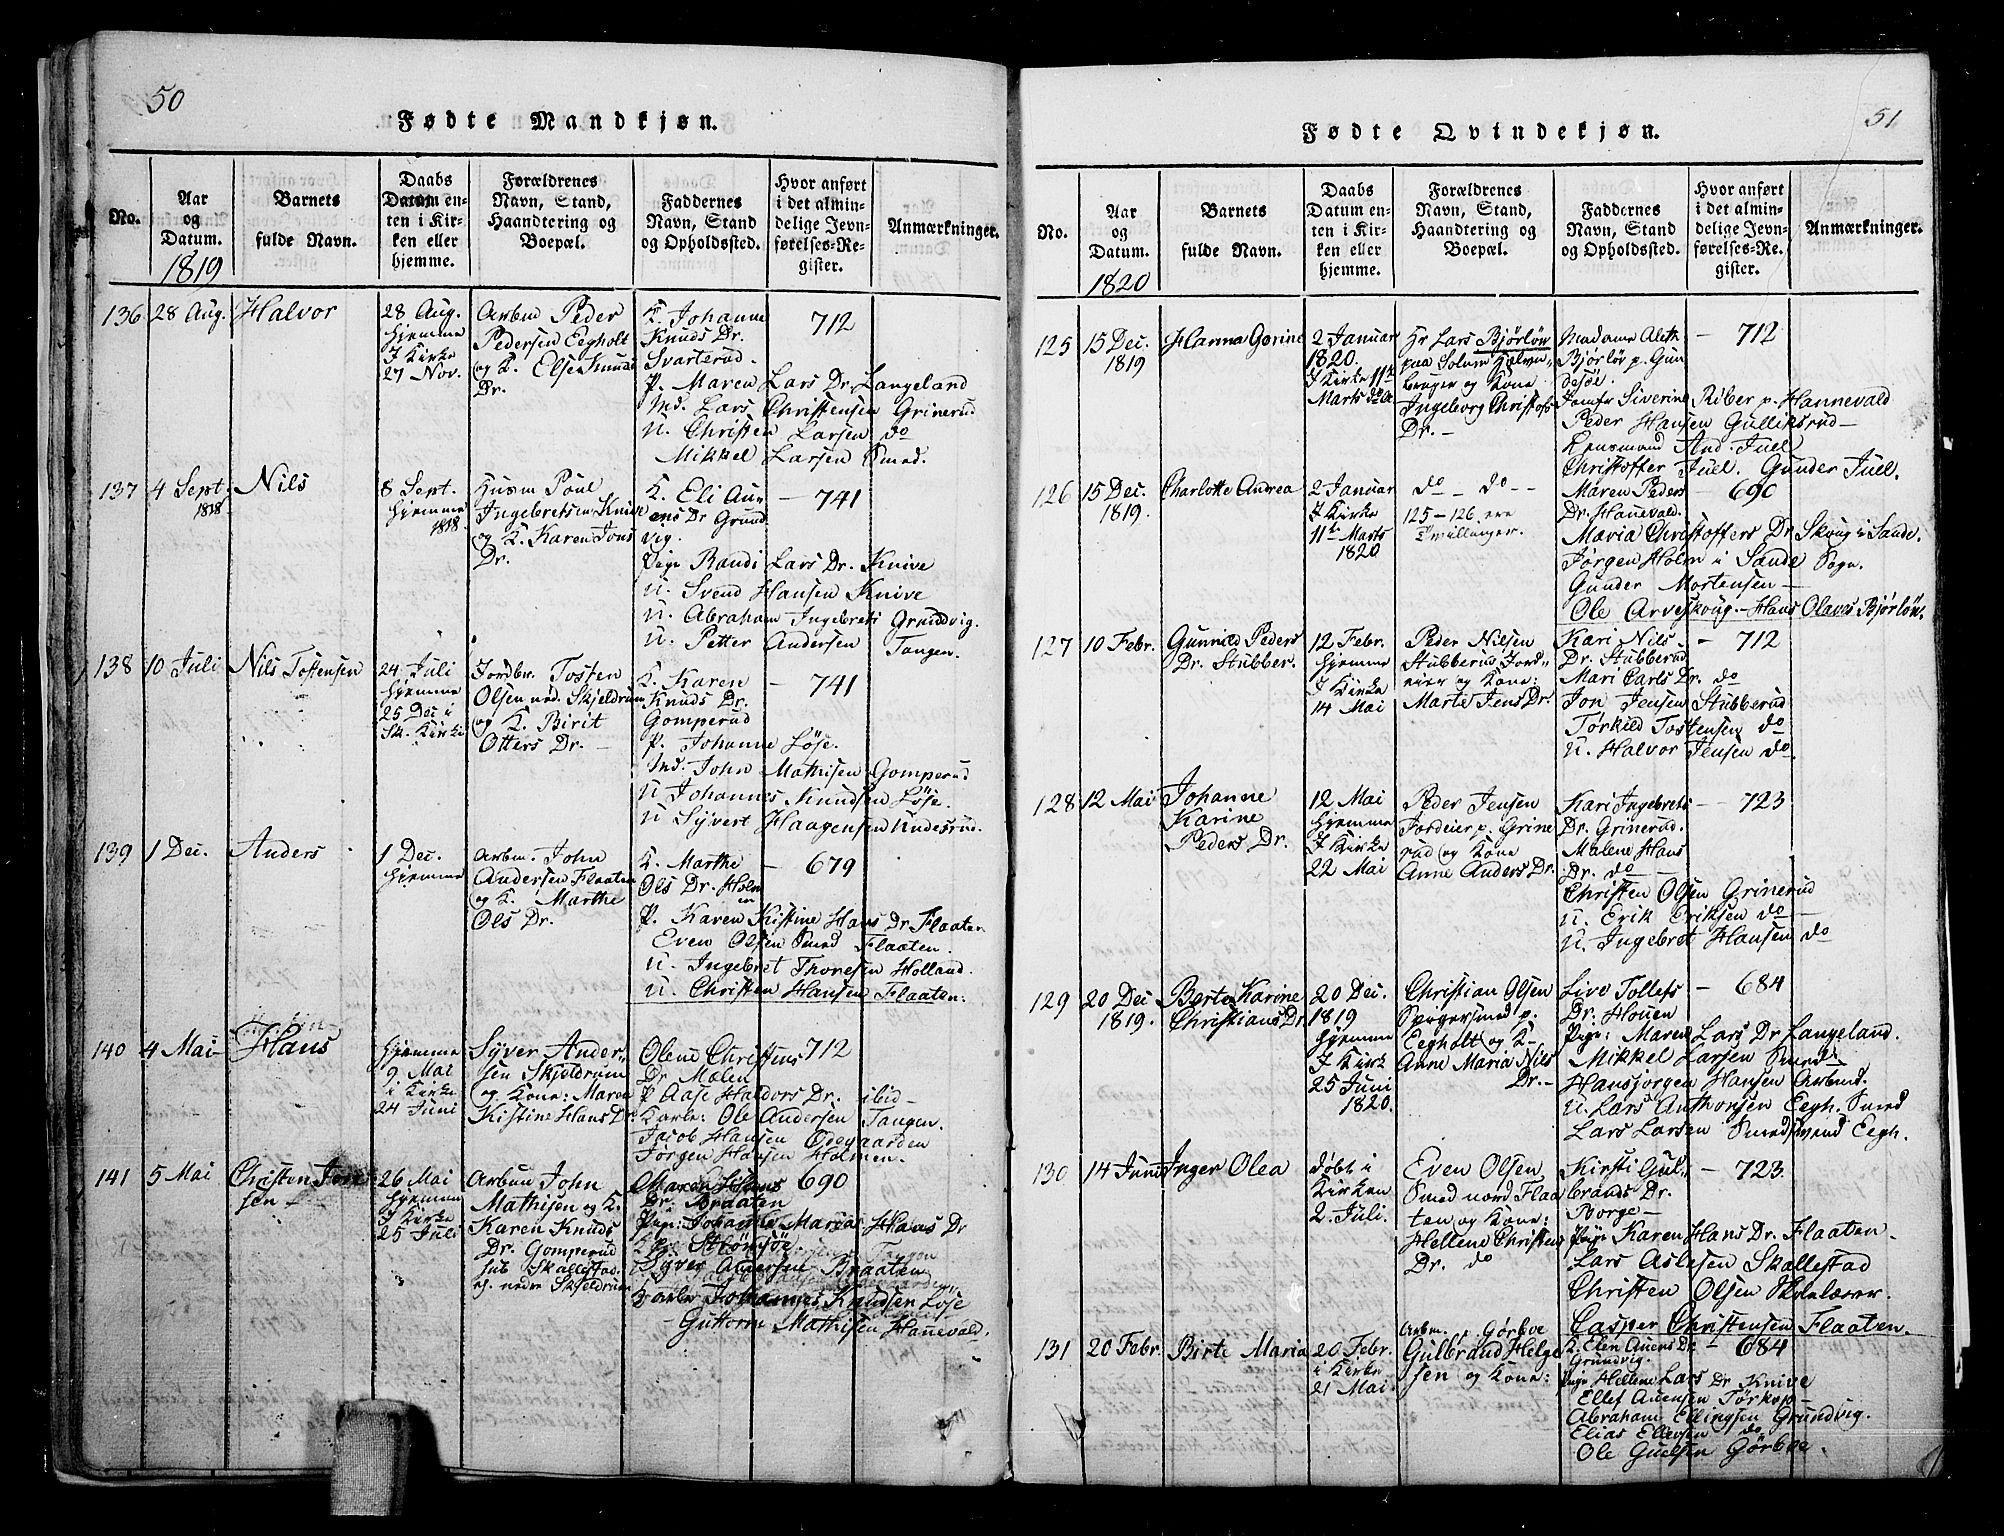 50
Fødte Mandkjøn.
No.
Aar
og
Datum.
1819
Barnets
fulde Navn.
Daabs
Datum en-
ten i Kir-
ken eller
hjemme.
Forældrenes
Navn, Stand,
Haandtering og
Boepæl.
Faddernes
Navn, Stand
og Opholdssted.
Hvor anført
i det almin-
delige Jevn-
førelses-Re-
gister.
Anmærkninger.
136
28 Aug.
Halvor
28 Aug.
hjemme
I Kirke
27 Nov.
Arbm Peder
Pedersen Eegholt
og K. Else Knuds
Dr.
K. Johanne
Knuds Dr.
Svarterud.
P. Maren Lars Dr. Langeland
Md. Lars Christensen Grinerud
U. Christen Larsen do
Mikkel Larsen Smed.
712
137
4 Sept.
1818
Nils
8 Sept.
hjemme
1818
Husm Poul
Ingebretsen Knive
og K. Karen Jons
Dr.
K. Eli Au-
ens Dr Grund
vig.
Pige Randi Lars Dr. Knive
U. Svend Hansen Knive
U. Abraham Ingebrets Grundvig.
U. Petter Andersen Tangen.
- 741
138
10 Juli
Nils Tostensen
24 Juli
hjemme
25 Dec i
Sk. Kirke
Jordbr. Tosten
Olsen ned. Skjeldrum
og K. Birit
Otters Dr. -
K. Karen
Knuds Dr.
Gomperud
P. Johanne Løse.
Md. John Mathisen Gomperud
U Johannes Knudsen Løse.
U Syvert Haagensen Undesrud.
- 741
139
1 Dec.
Anders
1 Dec.
hjemme
Arbm. John
Andersen Flaaten
og K. Marthe
Ols Dr.
K. Marthe
Ols Dr. Holm
en
P. Karen Kistine Hans Dr Flaaten
Even Olsen Smed Flaaten.
U. Ingebret Thoresen Holland.
U. Christen Hansen Flaaten.
- 679
140
4 Mai
Hans
hjemme
9 Mai
i Kirke
24 Juni
Syver Ander-
sen Skjeldrum
og Kone: Maren
Kistine Hans Dr.
Olene Christens
Dr. Malen
P Aase Haldors Dr. ibid
Karle: Ole Andersen Tangen.
Jacob Hansen Odegaarden
Jørgen Hansen Holmen.
712
141
5 Mai
Christen Jon
sen -
26 Mai
hjemme
I Kirke
25 Juli
Arbm John
Mathisen og K.
Karen Knuds
Dr. Gomperud
sub Skallestad.
ej. nedre Skjeldrum
Maren Hans
Dr. Braaten
Pige: Johanne Marias Hans Dr
Strømsöe.
Syver Andersen Braaten
Karle Johannes Knudsen Løse
- Guttorm Mathisen Hanevald.
690
51
Fødte Qvindekjøn.
No.
Aar
og
Datum.
1820
Barnets
fulde Navn.
Daabs
Datum en-
ten i Kir-
ken eller
hjemme.
Forældrenes
Navn, Stand,
Haandtering og
Boepæl.
Faddernes
Navn, Stand
og Opholdssted.
Hvor anført
i det almin-
delige Jevn-
førelses-Re-
gister.
Anmærkninger.
125
15 Dec.
1819
Hanna Gorine
2 Januar
1820.
I Kirke 11te
Marts do A
Hr Lars Bjørløv
paa Solum Halvm-
bruger og Kone
Ingeborg Christofs
Dr. -
Madame Aleth
Bjørløv p. Gun
desöe.
Jomfr Siverine Riber p. Hannevald
Peder Hansen Gulliksrud -
Lensmand And. Juel
Christoffer Juel. Gunder Juel.
- 712
126
15 Dec.
1819.
Charlotte Andrea
2 Januar
I Kirke
11te Marts
1820
do - do -
125 - 126 ere
Tvillinger.
Maren Peders
Dr. Hanevald.
Maria Christoffers Dr Skoug i Sande.
Jørgen Holm i Sande Sogn.
Gunder Mortensen -
Ole Arveskoug. - Hans Olaves Bjørløv.
- 690
127
10 Febr.
Gunnild Peders
Dr. Stubber.
12 Febr.
hjemme
I Kirke
14 Mai
Peder Nilsen
Stubberud Jord-
eier og Kone:
Marte Jens Dr.
Kari Nils
Dr. Stubberud
Mari Carls Dr. do
Jon Jensen Stubberud
Torkild Tostensen do
U. Halvor Jensen do.
- 712
128
12 Mai
Johanne
Karine
Peders Dr.
12 Mai
hjemme
I Kirke
22 Mai
Peder Jensen
Jordeier p. Grine
rud og Kone
Anne Anders Dr.
Kari Ingebrets
Dr. Grinerud.
Malene Hans
Dr. do
Christen Olsen Grinerud
U. Erik Eriksen do
U. Ingebret Hansen do
- 723
129
20 Dec
1819.
Berte Karine
Christians Dr.
20 Dec.
1819
hjemme
I Kirk
25 Juni
1820.
Christian Olsen
Spigersmed p.
Eegholt og K-
Anne Maria Nils
Dr. -
Live Tollefs
Dr. Houen
Pige: Maren Lars Dr Langeland.
Mikkel Larsen Smed
Hansjørgen Hansen Arbmd.
U. Lars Anthonsen Eegh. Smed
Lars Larsen Smedsvend Eegh.
- 684
130
14 Juni
Inger Olea
døbt i
Kirken
2. Juli.
Even Olsen
Smed nord Flaa
ten og Kone:
Hellene Christens
Dr. do
Kirsti Gul-
brands Dr.
Borge -
Pige Karen Hans Dr. Flaaten.
Lars Aslesen Skallestad
Christen Olsen Skolelærer.
Casper Christensen Flaaten.
- 723.
131
20 Febr.
Birte Maria
20 Febr.
i Kirke
21 Mai.
Arbm. p. Gørbve
Gulbrand Helge
sen og Kone:
K. Elen Auens Dr
Grundvig.
Pige Hellene Lars Dr Knive
Ellef Auensen Torkop
Abraham Ellingsen Grundvig.
Elias Ellevsen do
Ole Guelsen Gørbve.
- 684